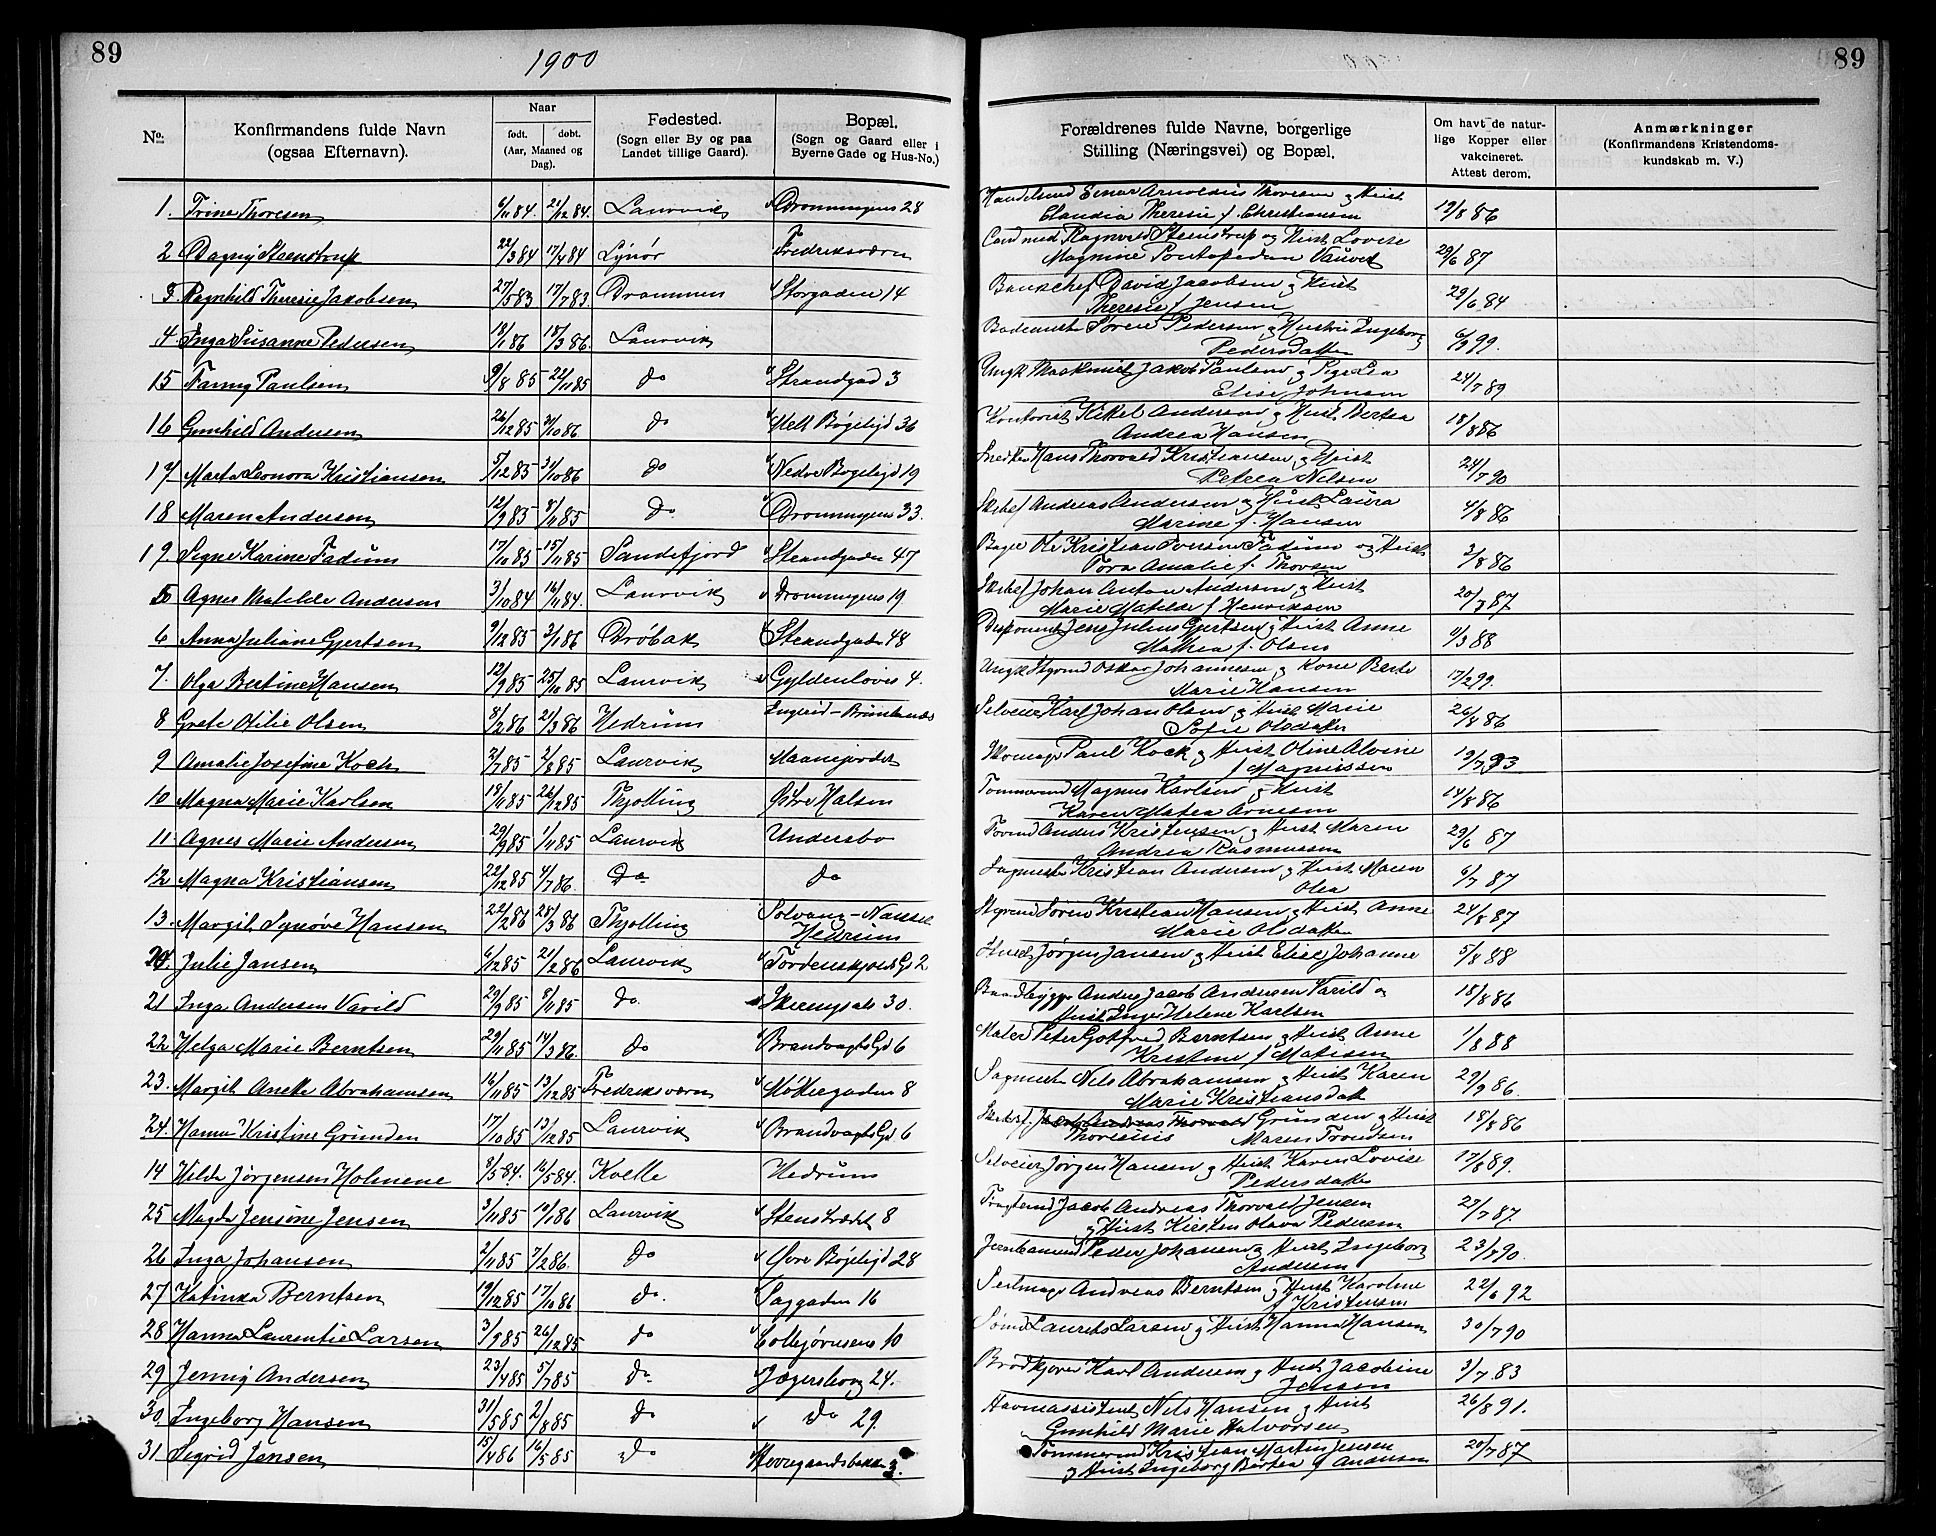 89
1900
89
No. Konfirmandens fulde Navn (ogsaa Efternavn). Naar født. døbt. (Aar, Maaned og Dag). Fødested. (Sogn eller By og paa Landet tillige Gaard). Bopæl. (Sogn og Gaard eller i Byerne Gade og Hus-No.) Forældrenes fulde Navne, borgerlige Stilling (Næringsvei) og Bopæl. Om havt de naturlige Kopper eller vakcineret. Attest derom. Anmærkninger (Konfirmandens Kristendomskundskab m. V.)
1. Trine Thoresen 6/11 84 21/12 84. Laurvik Dronningens 28 Einar Arnoldus Thoresen og Hust
Claudia Theresie f. Christiansen 19/8 86
2 Dagny Steenstrup 22/3 84 17/4 84 Lyngør Fredriksværn Ragnvald Steenstrup og Hust Lovise
Magnine 29/6 87
3. Ragnhild Theresie Jakobsen 27/5 83 17/7 83 Drammen Storgaden 14 Bankchef David Jacobsen og Hust
Theresie f Jensen 29/6 84
4. Inga Susanne Pedersen 18/3 86. Laurvik Søren Pedersen og Hustru Ingeborg
Pedersdatter
15 Fanny Paulsen 9/8 85 22/11 85 do Strandgad 3 Ungk Maskinist Jakob Paulsen og Pige Lea
Elise Johnsen 24/7 89
16 Gunhild Andersen 26/12 85 do Mell Bøgeligd 36 Kontorist Kittel Andersen og Hust Bertea
Andrea Hansen 18/8 86
17 Marta Leonora Kristiansen 5/12 85 do Nedre Bøgeligd 19 Snedker Hans Thorvald Kristiansen og Hust
Petrea Nilsen 24/7 90
18 Maren Andersen 12/9 85 8/11 85 do Dronningens 33. Andreas Andersen og Hust Laura
Marine f. Hansen 4/8 86
19. Signe Karine Fadum 17/10 85 15/11 85 Sandefjord Strandgaden 47 Bager Ole Kristian Iversen Fadum og Hust
Tora Amalie f. Thorsen 2/8 86
5 Agnes Matilde Andersen 3/10 84 16/11 84. Laurvik Dronningens 19 Johan Anton Andersen og Hust
Marie Matilde f Henriksen 20/7 87
6 Anna Juliane Gjertsen 9/12 85 3/1 86 Drøbak Strandgaden 48 Disponent Jens Julius Gjertsen og Hust Anne
Mathea f. Olsen 9/3 88
7. Olga Bertine Hansen 12/9 85 25/10 85 Laurvik Gyldenløves 4. Ungk Styrmd Oskar Johannesen og Kone Berte
Marie Hansen 17/2 99.
8 Grete Otilie Olsen 8/2 86 21/3 86 Hedrum Karl Johan Olsen og Hust Marie
Sofie Olsdatter 26/8 86
9 Amalie Josefine Koch 3/7 85 2/8 85 Laurvik Maanejordet Skomager Paul Kock og Hust Oline Alvine
f Magnussen 19/7 93
10 Magna Marie Karlsen 18/11 85 26/12 85 Thjølling Østre Halsen Tømmermd Magnus Karlsen og Hust
Karen Matea Arnesen 14/8 86
11. Agnes Marie Andersen 29/9 85 1/11 85 Laurvik Undersbo Anders Kristensen og Hust Maren
Andrea Rasmussen 29/6 87
12 Magna Kristiansen 22/12 85 4/7 86. do do Sagmester Kristian Andersen og Hust Maren
Olea 6/7 87
13. Margit Synøve Hansen 22/2 86 28/3 86 Thjølling Solvang - Nanset
Hedrum Styrmd Søren Kristian Hansen og Hust Anne
Marie Olsdatter 24/8 87
20. Julie Jansen 6/12 85 21/2 86 Laurvik Tordenskjolds Gd 2 Jørgen Jansen og Hust Elise Johanne 5/8 88
21 Inga Andersen Varild 29/9 85 8/11 85 do. 30. Baadbygger Anders Jacob Andersen Varild og
Hust Inger Helene Karlsen 18/8 86
22 Helga Marie Berntsen 29/11 85 14/3 86. do Brandvagts Gd 6 Maler Peter Gotfred Berntsen og Hust Anne
Kristine f Matisen 1/8 88
23. Margit Anette Abrahamsen 16/11 85 13/12 85 Fredriksværn Møllergaden 8 Sagmester Nils Abrahamsen og Hust Karen
Marie Kristiansdatt 29/9 86.
24. Hanna Kristine Grunden 17/10 85 13/12 85 Laurvik Brandvagts Gd 6 Grunden og Hust
Thoresius Maren Trondsen 18/8 86
14 Hilda Jørgensen Holmene 3/5 84. 16/5 84. Kvelle Hedrum Jørgen Hansen og Hust Karen Lovise
Pedersdatter 17/8 89.
25 Magda Jensine Jensen 3/11 85 10/1 86 Laurvik Stenstrædet 8 Jacob Andreas Thorvald Jensen
og Hust Kirsten Olava Pedersen 27/7 87.
26 Inga Johansen 2/11 85 7/2 86. do Øvre Bøgeligd 28 Peder Johansen og Hust Ingeborg
Andersen 23/7 90.
27 Katinka Berntsen 19/12 85 17/10 86 do. Saggaden 16 Seilmager Andreas Berntsen og Hust Karoline
f Kristensen 22/6 92
28 Hanna Laurentie Larsen 3/9 85 26/12 85 do Collejørnsens 10 Sømd Laurits Larsen og Hust Hanna Hansen 30/7 90
29 Jenny Andersen 23/4 85 5/7 85 do Jægersborg 24. Brødkjører Karl Andersen og Hust Jacobine
Jensen 3/7 83
30 Ingeborg Hansen 31/5 85 2/8 85 do do 29. Havnassistent Nils Hansen og Hust
Gunhild Marie Halvorsen 26/8 91.
31 Sigrid Jensen 15/4 86 16/5 85 do Herregaardsbakken 3. Tømmermd Kristian Martin Jensen
og Hust Ingeborg Bertea f Andersen 20/7 87